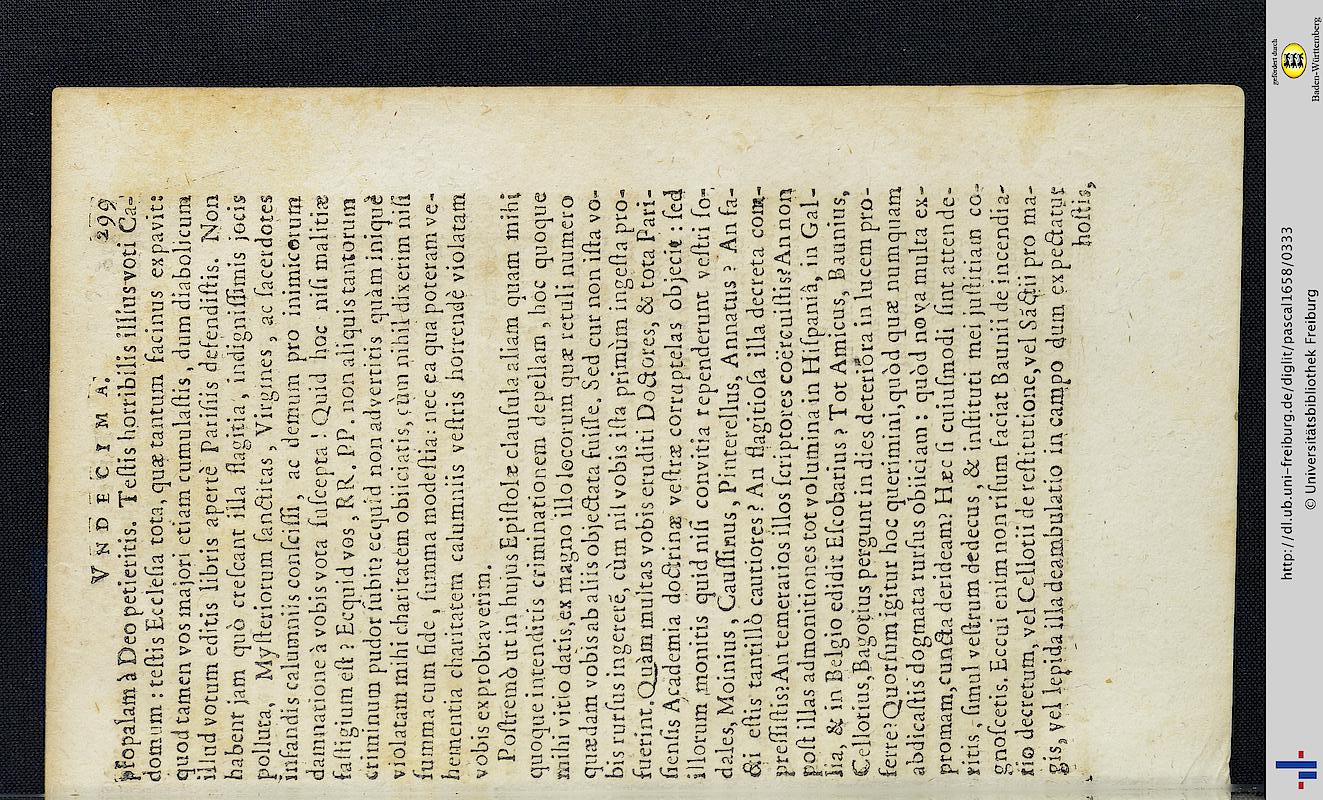 VNDECIMA. 299
propalam à Deo petieritis. Teſtis horribilis illius voti Ca-
domum : teſtis Eccleſia tota, quæ tantum facinus expavit:
quod tamen vos majori etiam cumulaſtis, dum diabolicum
illud votum editis libris apertè Pariſiis defendiſtis. Non
habent jam quò creſcant illa flagitia, indigniſſimis jocis
polluta, Myſteriorum ſanctitas, Virgines, ac ſacerdotes
infandis calumniis conſciſſi, ac demum pro inimicorum
damnatione à vobis vota ſuſcepta ! Quid hoc niſi malitiæ
faſtigium eſt ? Ecquid vos, RR. PP. non aliquis tantorum
criminum pudor ſubit? ecquid non advertitis quàm iniquè
violatam mihi charitatem obiiciatis, cùm nihil dixerim niſi
ſumma cum fide, ſumma modeſtia: nec ea qua poteram ve-
hementia charitatem calumniis veſtris horrendè violatam
vobis exprobraverim.
Poſtremò ut in hujus Epiſtolæ clauſula aliam quam mihi
quoque intenditis criminationem depellam, hoc quoque
mihi vitio datis, ex magno illo locorum quæ retuli numero
quædam vobis ab aliis objectata fuiſſe. Sed cur non iſta vo-
bis rurſus ingererē, cùm nil vobis iſta primùm ingeſta pro-
fuerint. Quàm multas vobis eruditi Doctores, & tota Pari-
ſienſis Academia doctrinæ veſtræ corruptelas objecit : ſed
illorum monitis quid niſi convitia rependerunt veſtri ſo-
dales, Moinius, Cauſſinus, Pinterellus, Annatus ? An fa-
cti eſtis tantillò cautiores ? An flagitioſa illa decreta com-
preſſiſtis? An temerarios illos ſcriptores coërcuiſtis? An non
poſt illas admonitiones tot volumina in Hiſpaniâ, in Gal-
lia, & in Belgio edidit Eſcobarius ? Tot Amicus, Baunius,
Cellotius, Bagotius pergunt in dies deteriora in lucem pro-
ferre? Quorſum igitur hoc querimini, quòd quæ numquam
abdicaſtis dogmata rurſus obiiciam : quòd nova multa ex-
promam, cuncta derideam? Hæc ſi cuiuſmodi ſint attende-
ritis, ſimul veſtrum dedecus & inſtituti mei juſtitiam co-
gnoſcetis. Eccui enim non riſum faciat Baunii de incendia-
rio decretum, vel Cellotii de reſtitutione, vel Sāctii pro ma-
gis, vel lepida illa deambulatio in campo dum expectatur
hoſtis,
gefördert durch
Baden-Württemberg
http://dl.ub.uni-freiburg.de/diglit/pascal1658/0333
© Universitätsbibliothek Freiburg